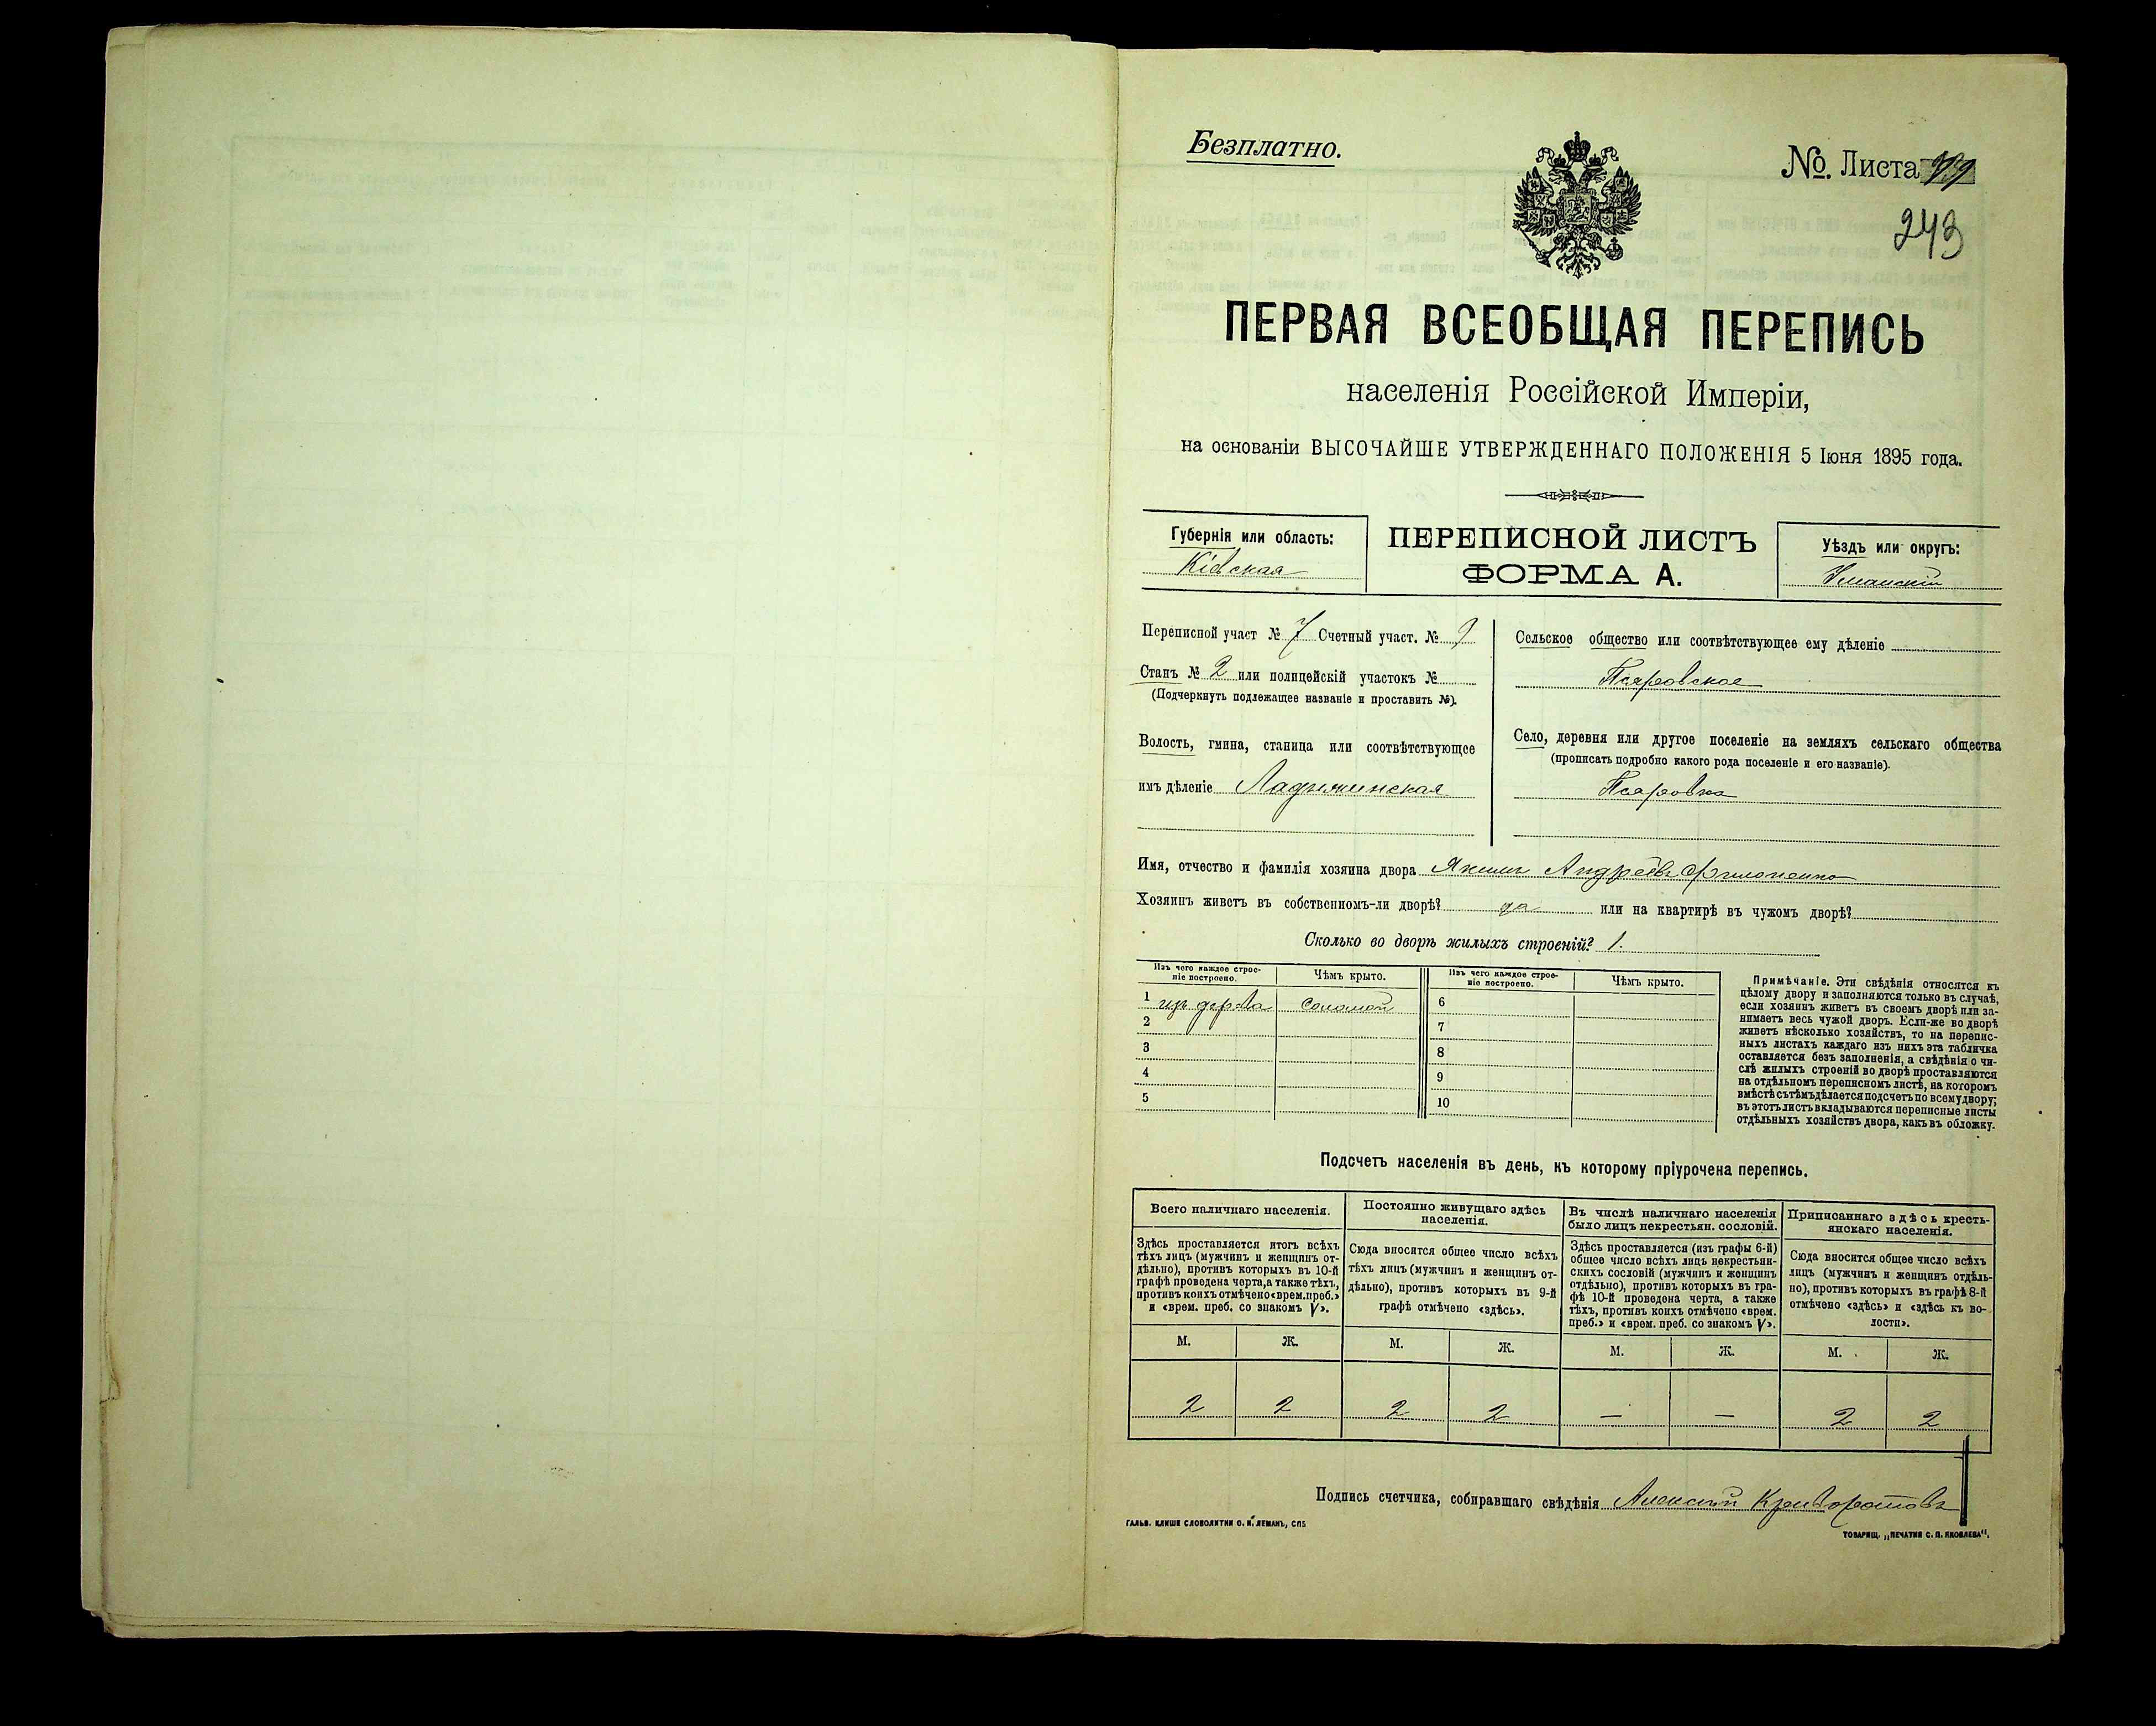 Безплатно.
№. Листа
243
ПЕРВАЯ ВСЕОБЩАЯ ПЕРЕПИСЬ
населенія Россійской Имперіи,
на основаніи ВЫСОЧАЙШЕ УТВЕРЖДЕННАГО ПОЛОЖЕНІЯ 5 Іюня 1895 года.
Губернія или область:
Кіевская
ПЕРЕПИСНОЙ ЛИСТЪ
ФОРМА А.
Уѣздъ или округъ:
Уманскій
Переписной участ № 7 Счетный участ. № 9
Станъ № 2 или полицейскій участокъ №
(Подчеркнуть подлежащее названіе и проставить №).
Волость, гмина, станица или соотвѣтствующее
имъ дѣленіе Ладыжинская
Сельское общество или соотвѣтствующее ему дѣленіе
Псяровское
Село, деревня или другое поселеніе на земляхъ сельскаго общества
(прописать подробно какого рода поселеніе и его названіе).
Псяровка
Имя, отчество и фамилія хозяина двора Якимъ Андреевъ Филоненко
Хозяинъ живетъ въ собственномъ-ли дворѣ? да или на квартирѣ въ чужомъ дворѣ?
Сколько во дворѣ жилыхъ строеній? 1.
Изъ чего каждое строе-
ніе построено.
Чѣмъ крыто.
Изъ чего каждое строе-
ніе построено.
Чѣмъ крыто.
1 изъ дерева соломой 6
2 7
3 8
4 9
5 10
Примѣчаніе. Эти свѣдѣнія относятся къ
цѣлому двору и заполняются только въ случаѣ,
если хозяинъ живетъ въ своемъ дворѣ или за-
нимаетъ весь чужой дворъ. Если-же во дворѣ
живетъ нѣсколько хозяйствъ, то на перепис-
ныхъ листахъ каждаго изъ нихъ эта табличка
оставляется безъ заполненія, а свѣдѣнія о чи-
слѣ жилыхъ строеній во дворѣ проставляются
на отдѣльномъ переписномъ листѣ, на которомъ
вмѣстѣ съ тѣмъ дѣлается подсчетъ по всему двору;
въ этотъ листъ вкладываются переписные листы
отдѣльныхъ хозяйствъ двора, какъ въ обложку.
Подсчетъ населенія въ день, къ которому пріурочена перепись.
Всего наличнаго населенія.
Здѣсь проставляется итогъ всѣхъ
тѣхъ лицъ (мужчинъ и женщинъ от-
дѣльно), противъ которыхъ въ 10-й
графѣ проведена черта, а также тѣхъ,
противъ коихъ отмѣчено «врем. преб.»
и «врем. преб. со знакомъ V».
Постоянно живущаго здѣсь
населенія.
Сюда вносится общее число всѣхъ
тѣхъ лицъ (мужчинъ и женщинъ от-
дѣльно), противъ которыхъ въ 9-й
графѣ отмѣчено «здѣсь».
Въ числѣ наличнаго населенія
было лицъ некрестьян. сословій.
Здѣсь проставляется (изъ графы 6-й)
общее число всѣхъ лицъ некрестьян-
скихъ сословій (мужчинъ и женщинъ
отдѣльно), противъ которыхъ въ гра-
фѣ 10-й проведена черта, а также
тѣхъ, противъ коихъ отмѣчено «врем.
преб.» и «врем. преб. со знакомъ V».
Приписаннаго здѣсь кресть-
янскаго населенія.
Сюда вносится общее число всѣхъ
лицъ (мужчинъ и женщинъ отдѣль-
но), противъ которыхъ въ графѣ 8-й
отмѣчено «здѣсь» и «здѣсь къ во-
лости».
М. Ж. М. Ж. М. Ж. М. Ж.
2 2 2 2 — — 2 2
Подпись счетчика, собиравшаго свѣдѣнія Алексѣй Криворотовъ
ГАЛЬВ. КЛИШЕ СЛОВОЛИТНИ О. И. ЛЕМАНЪ, СПБ
ТОВАРИЩ. „ПЕЧАТНЯ С. П. ЯКОВЛЕВА“.